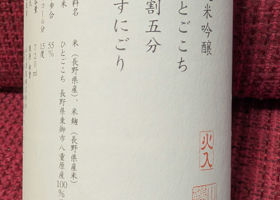 米吟醸
とごこち
割五分
すにごり
火入
料名 米(長野県産米)、米麹(長野県産米)
米 ひとごこち 長野県東御市八重原産100%
55%
15度
720ml